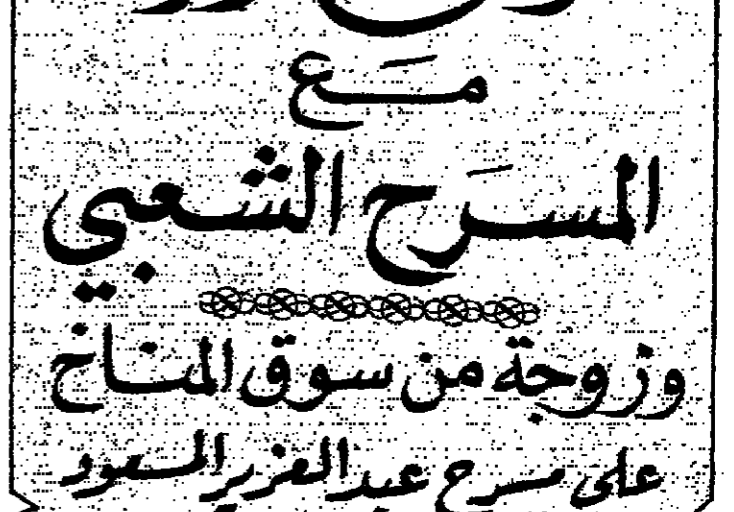 مع
المسرح الشعبي
وزوجة من سوق المناخ
على مسرح عبدالعزيز المسعود